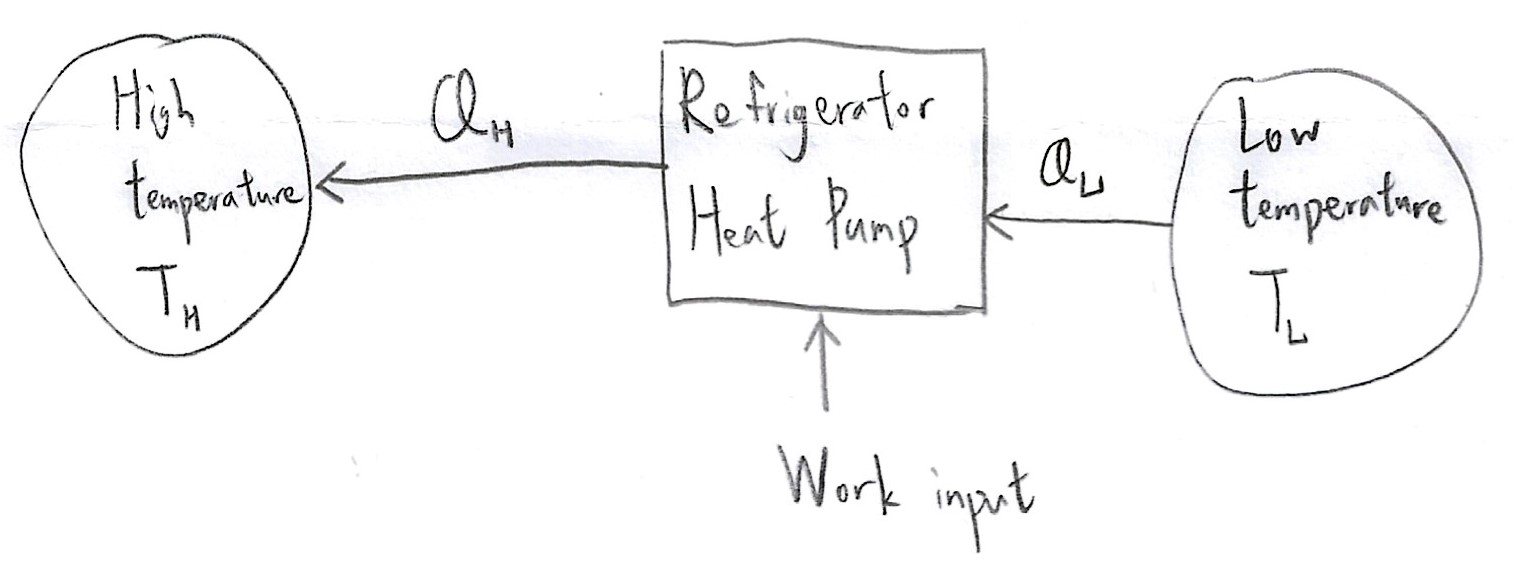 High
temperature
T_H
Q_H
Refrigerator
Heat Pump
Q_L
Low
temperature
T_L
Work input